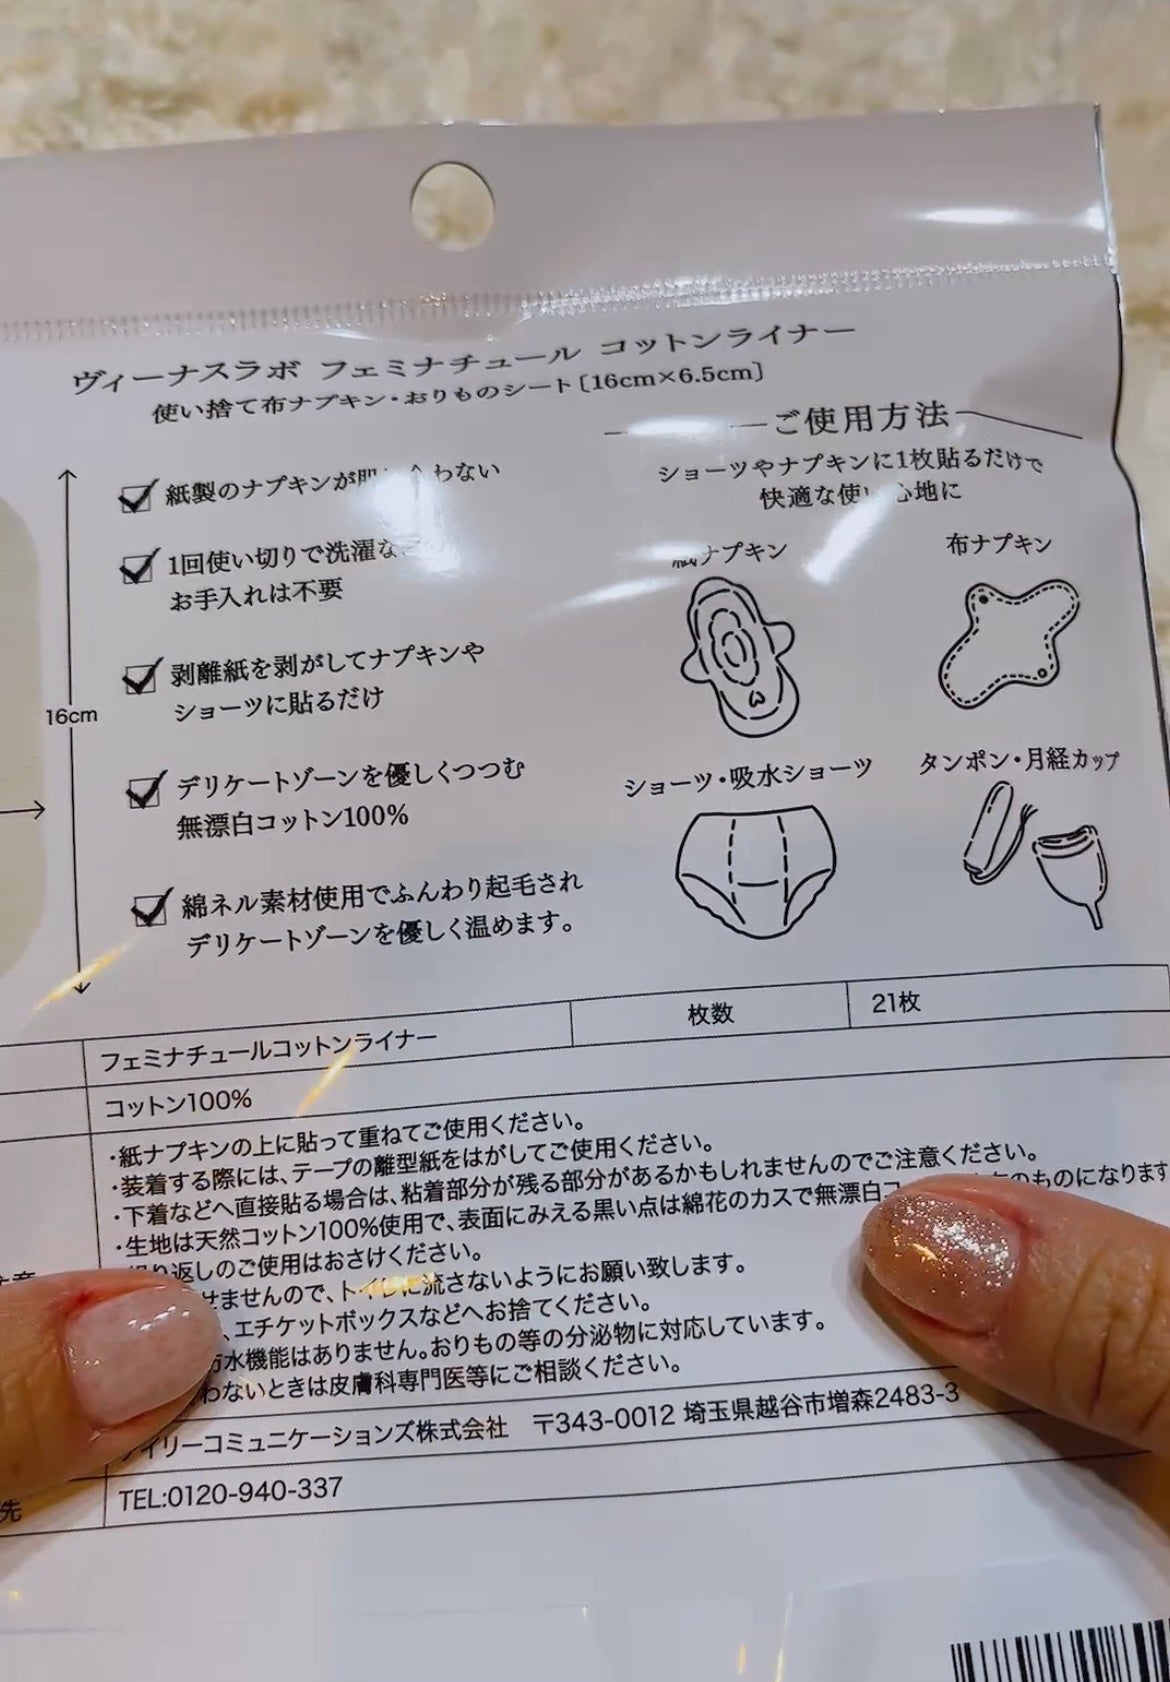 ヴィーナスラボ フェミナチュール コットンライナー
使い捨て布ナプキン・おりものシート［16cm×6.5cm］
紙製のナプキンが わない
1回使い切りで洗濯な
お手入れは不要
剥離紙を剥がしてナプキンや
ショーツに貼るだけ
16cm
デリケートゾーンを優しくつつむ
無漂白コットン100%
綿ネル素材使用でふんわり起毛され
デリケートゾーンを優しく温めます。
ご使用方法
ショーツやナプキンに1枚貼るだけで
快適な使い心地に
紙ナプキン
布ナプキン
ショーツ・吸水ショーツ
タンポン・月経カップ
フェミナチュールコットンライナー 枚数 21枚
コットン100%
・紙ナプキンの上に貼って重ねてご使用ください。
・装着する際には、テープの離型紙をはがしてご使用ください。
・下着などへ直接貼る場合は、粘着部分が残る部分があるかもしれませんのでご注意ください。
・生地は天然コットン100%使用で、表面にみえる黒い点は綿花のカスで無漂白コ のものになります
り返しのご使用はおさけください。
せませんので、トイレに流さないようにお願い致します。
、エチケットボックスなどへお捨てください。
防水機能はありません。おりもの等の分泌物に対応しています。
わないときは皮膚科専門医等にご相談ください。
イリーコミュニケーションズ株式会社 〒343-0012 埼玉県越谷市増森2483-3
先 TEL:0120-940-337